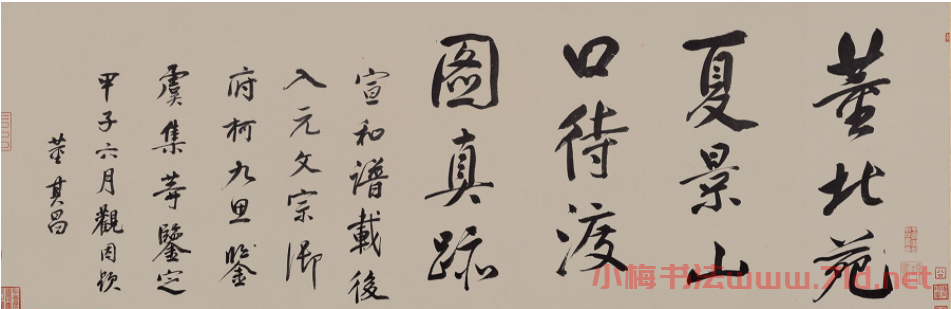 董北苑
夏景山
口待渡
圖真跡
宣和譜載後
入元文宗御
府柯九思鑒
虞集等鑒定
甲子六月觀因題
董其昌
小梅书法www.71d.net